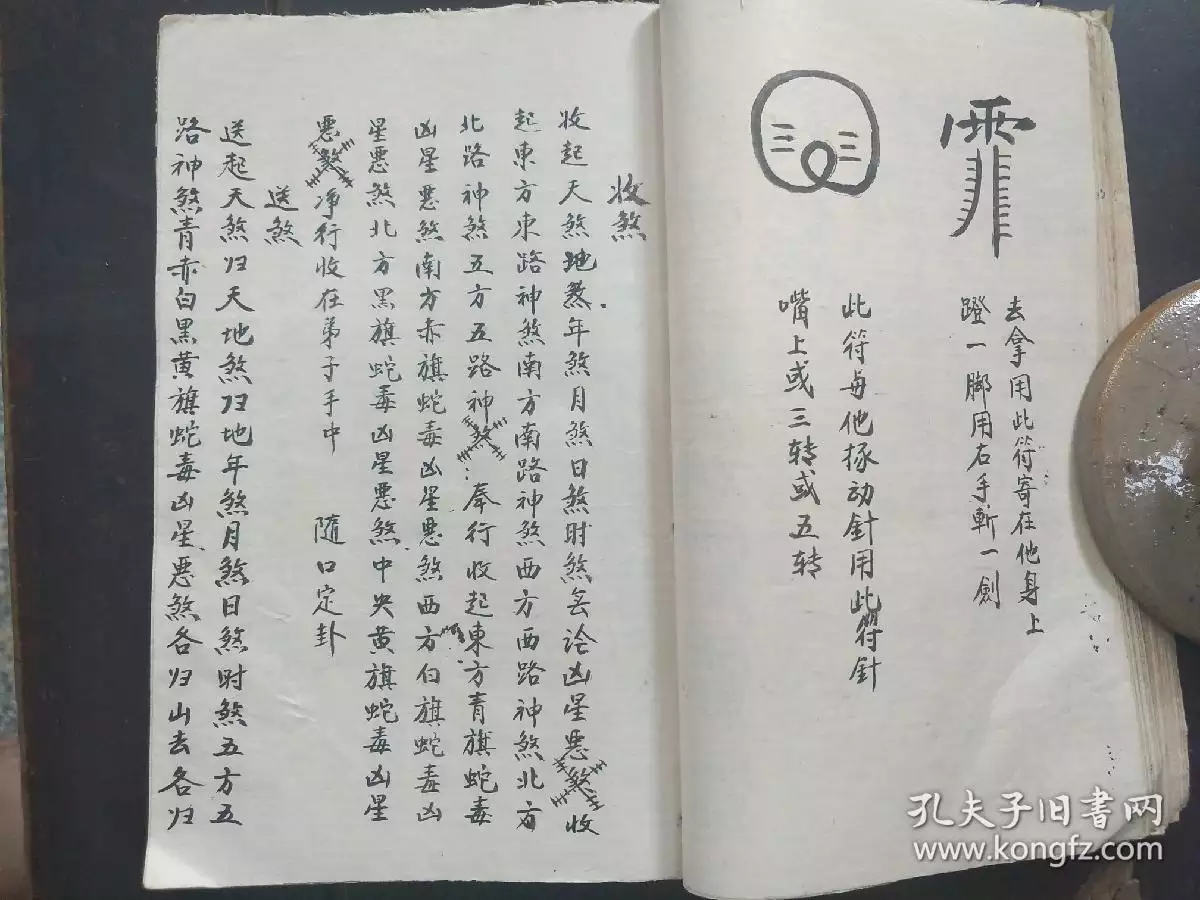 去拿用此符寄在他身上
蹬一脚用右手斬一劍
此符每他揼动針用此符針
嘴上或三转或五转
收煞
收起天煞地煞年煞月煞日煞时煞无论凶星恶煞收
起東方東路神煞南方南路神煞西方西路神煞北方
北路神煞五方五路神煞奉行收起東方青旗蛇毒
凶星恶煞南方赤旗蛇毒凶星恶煞西方白旗蛇毒凶
星恶煞北方黑旗蛇毒凶星恶煞中央黄旗蛇毒凶星
恶煞净行收在弟子手中 隨口定卦
送煞
送起天煞归天地煞归地年煞月煞日煞时煞五方五
路神煞青赤白黑黄旗蛇毒凶星恶煞各归山去各归
孔夫子旧书网
www.kongfz.com